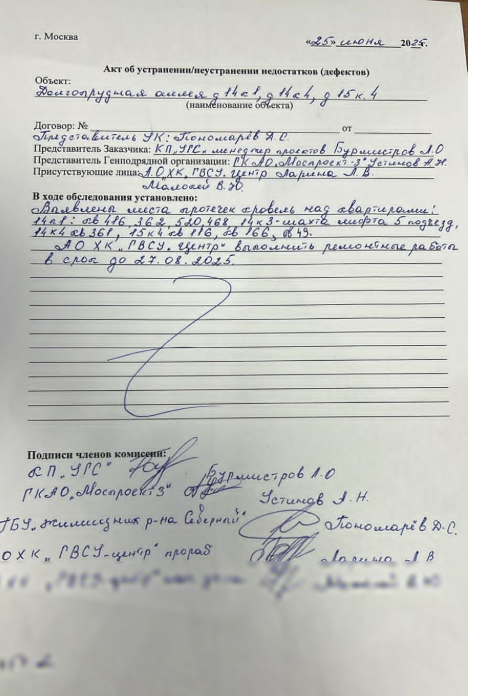 г. Москва «25» июня 2025г.
Акт об устранении/неустранении недостатков (дефектов)
Объект:
Долгопрудная аллея д 14 к 1, д 14 к 4, д 15 к. 4
(наименование объекта)
Договор: № от
Представитель УК: Пономарёв Д.С.
Представитель Заказчика: КП „УГС" менеджер проектов Бурмистров Л.О
Представитель Генподрядной организации: ГКАО „Моспроект-3" Устинов А.Н.
Присутствующие лица: АО ХК „ГВСУ „Центр" Ларина Л.В.
В.Ю
В ходе обследования установлено:
Выявлены места протечек кровель над квартирами:
14к1: кв 416, 362, 520, 468, 14к3-шахта лифта 5 подъезд,
14к4 кв 361, 15к4 кв 116, кв 166, кв 49.
АО ХК „ГВСУ „Центр" выполнить ремонтные работы
в срок до 27.08.2025.
Подписи членов комиссии:
КП „УГС" Бурмистров Л.О
ГКАО „Моспроект3" Устинов А.Н.
ГБУ „Жилищник р-на Северный" Пономарёв Д.С.
ОХК „ГВСУ-центр" прораб Ларина Л В